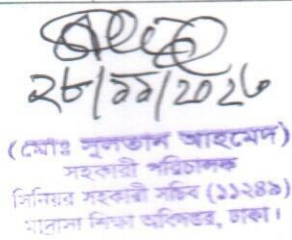 ২৮/১১/২০২৩
(মোঃ সুলতান আহমেদ)
সহকারী পরিচালক
সিনিয়র সহকারী সচিব (১১২৪৯)
মাদ্রাসা শিক্ষা অধিদপ্তর, ঢাকা।